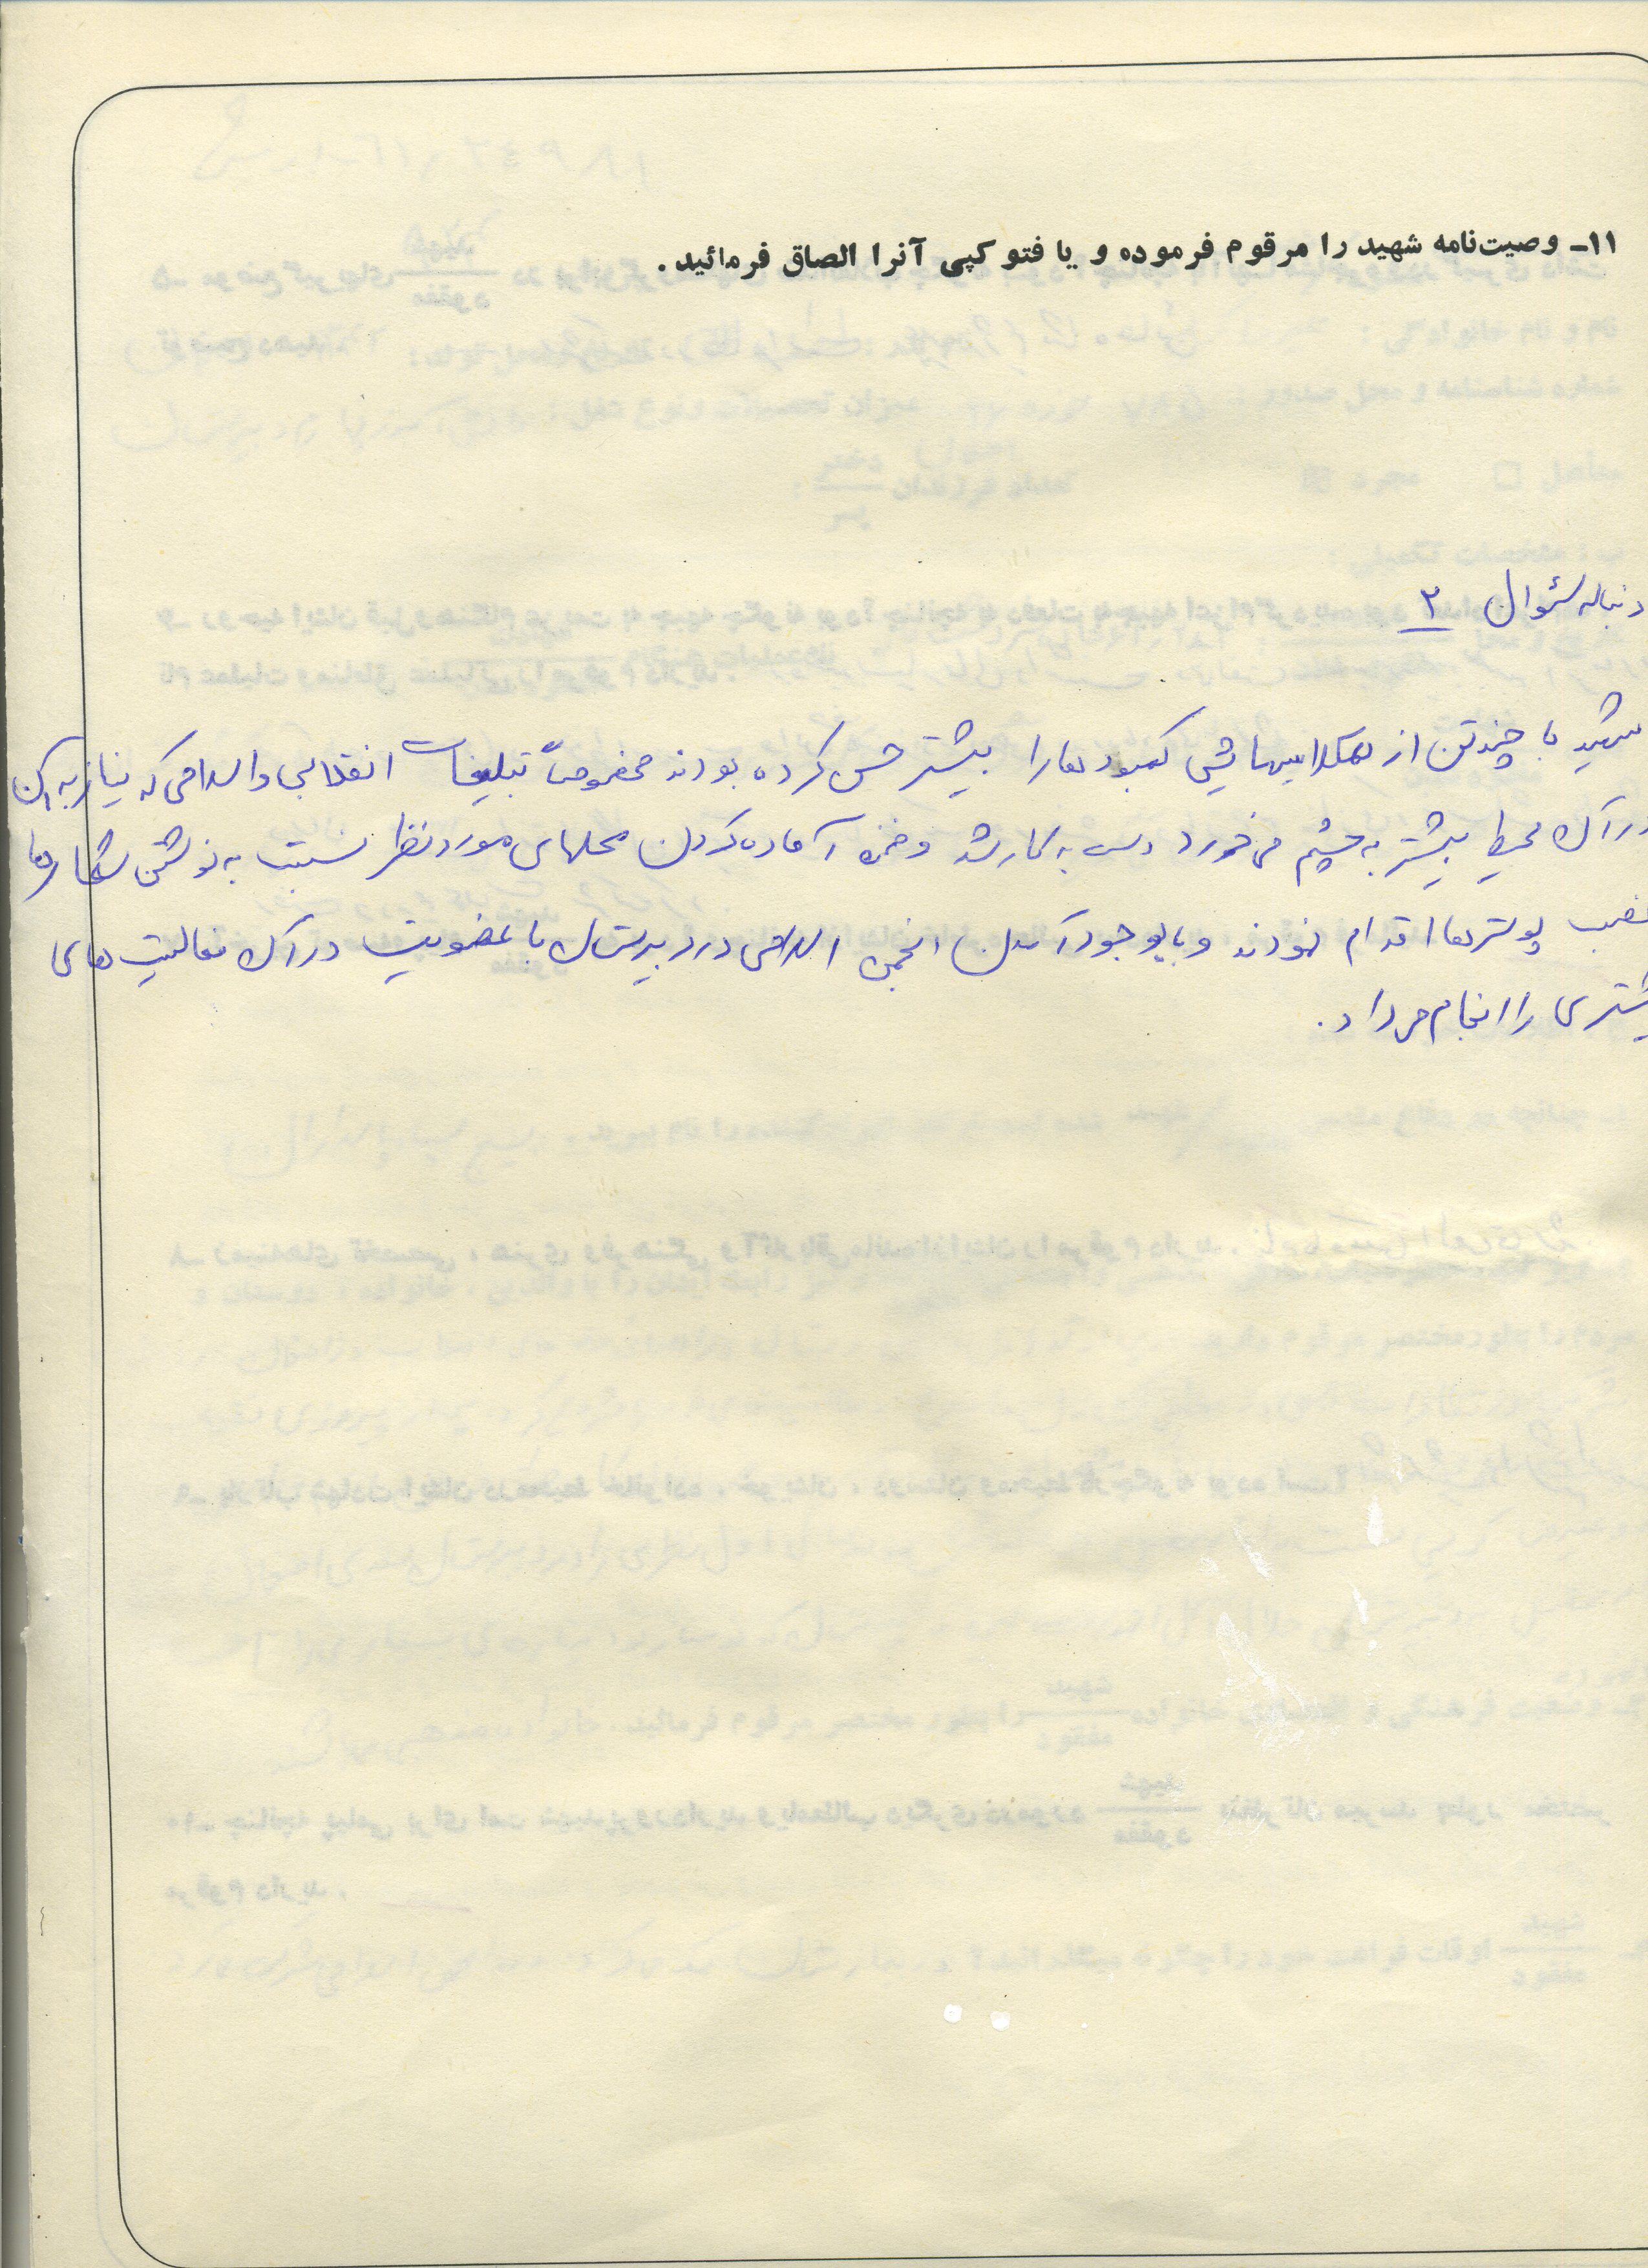 ۱۱- وصیت‌نامه شهید را مرقوم فرموده و یا فتوکپی آنرا الصاق فرمائید.
دنباله سئوال ۲
شهید با چند تن از همکلاسیهایش کمبودها را بیشتر حس کرده بودند مخصوصاً تبلیغات انقلابی و اسلامی که نیاز به آن
در آن محیط بیشتر به چشم می خورد دست به کار شد و ضمن آماده کردن محلهای مورد نظر نسبت به نوشتن شعارها
نصب پوسترها اقدام نمودند و با بوجود آمدن انجمن اسلامی در دبیرستان با عضویت در آن فعالیت های
بیشتری را انجام می داد.